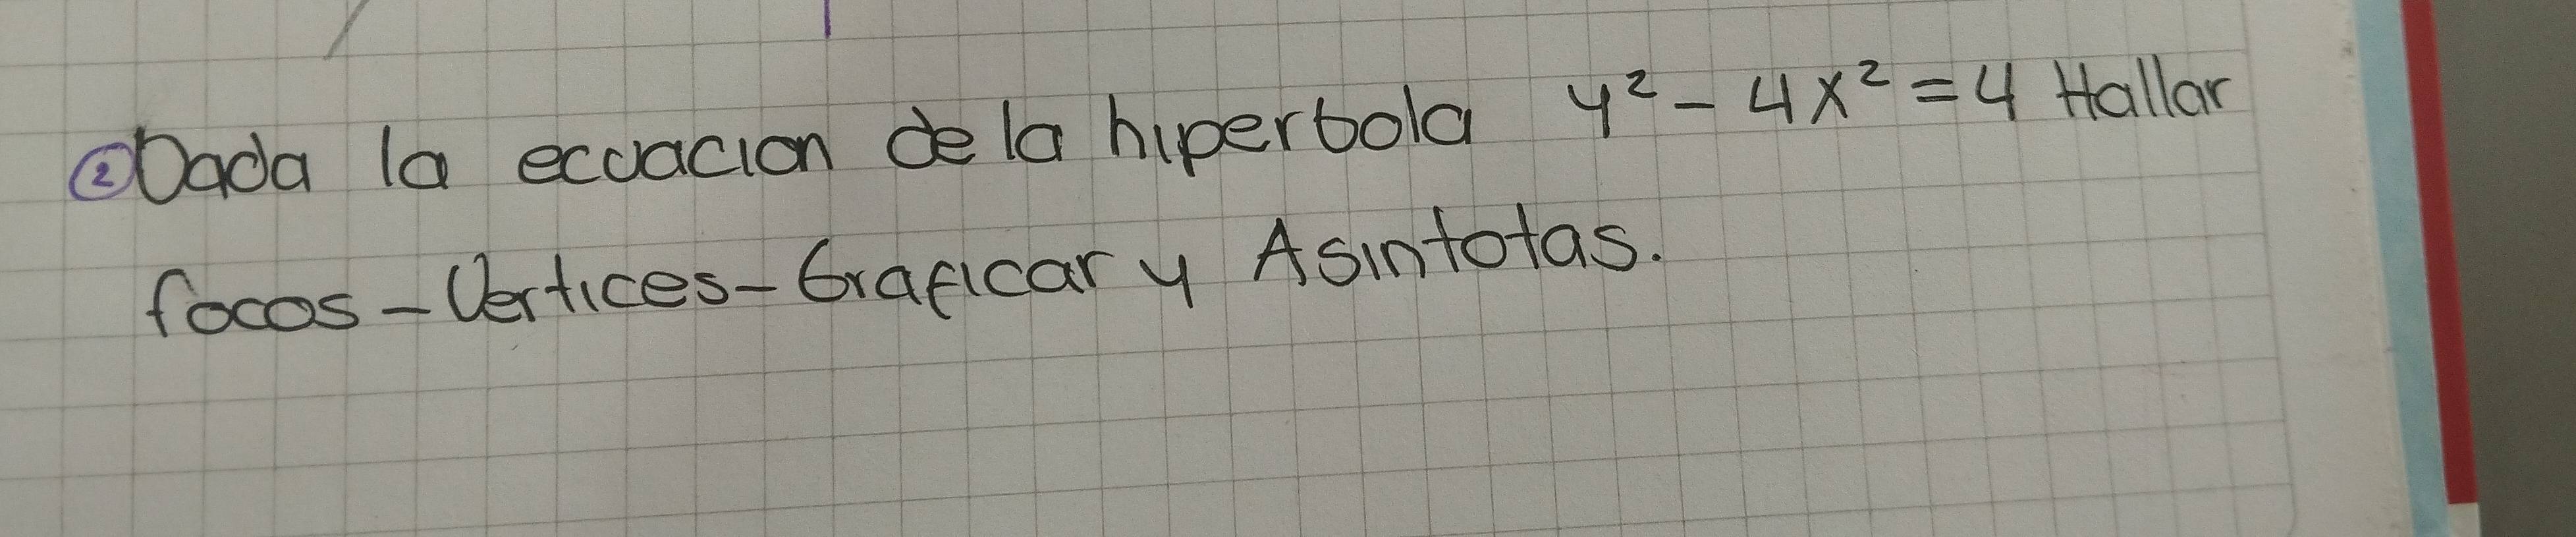 ② Dada la ecuacion de la hiperbola y² - 4x² = 4 Hallar
focos - Vertices - Graficar y Asintotas.